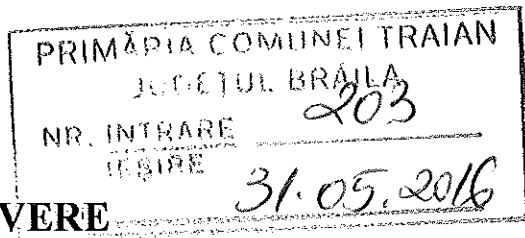 PRIMĂRIA COMUNEI TRAIAN
JUDEȚUL BRĂILA
NR. INTRARE 203
IEȘIRE
31.05.2016
VERE